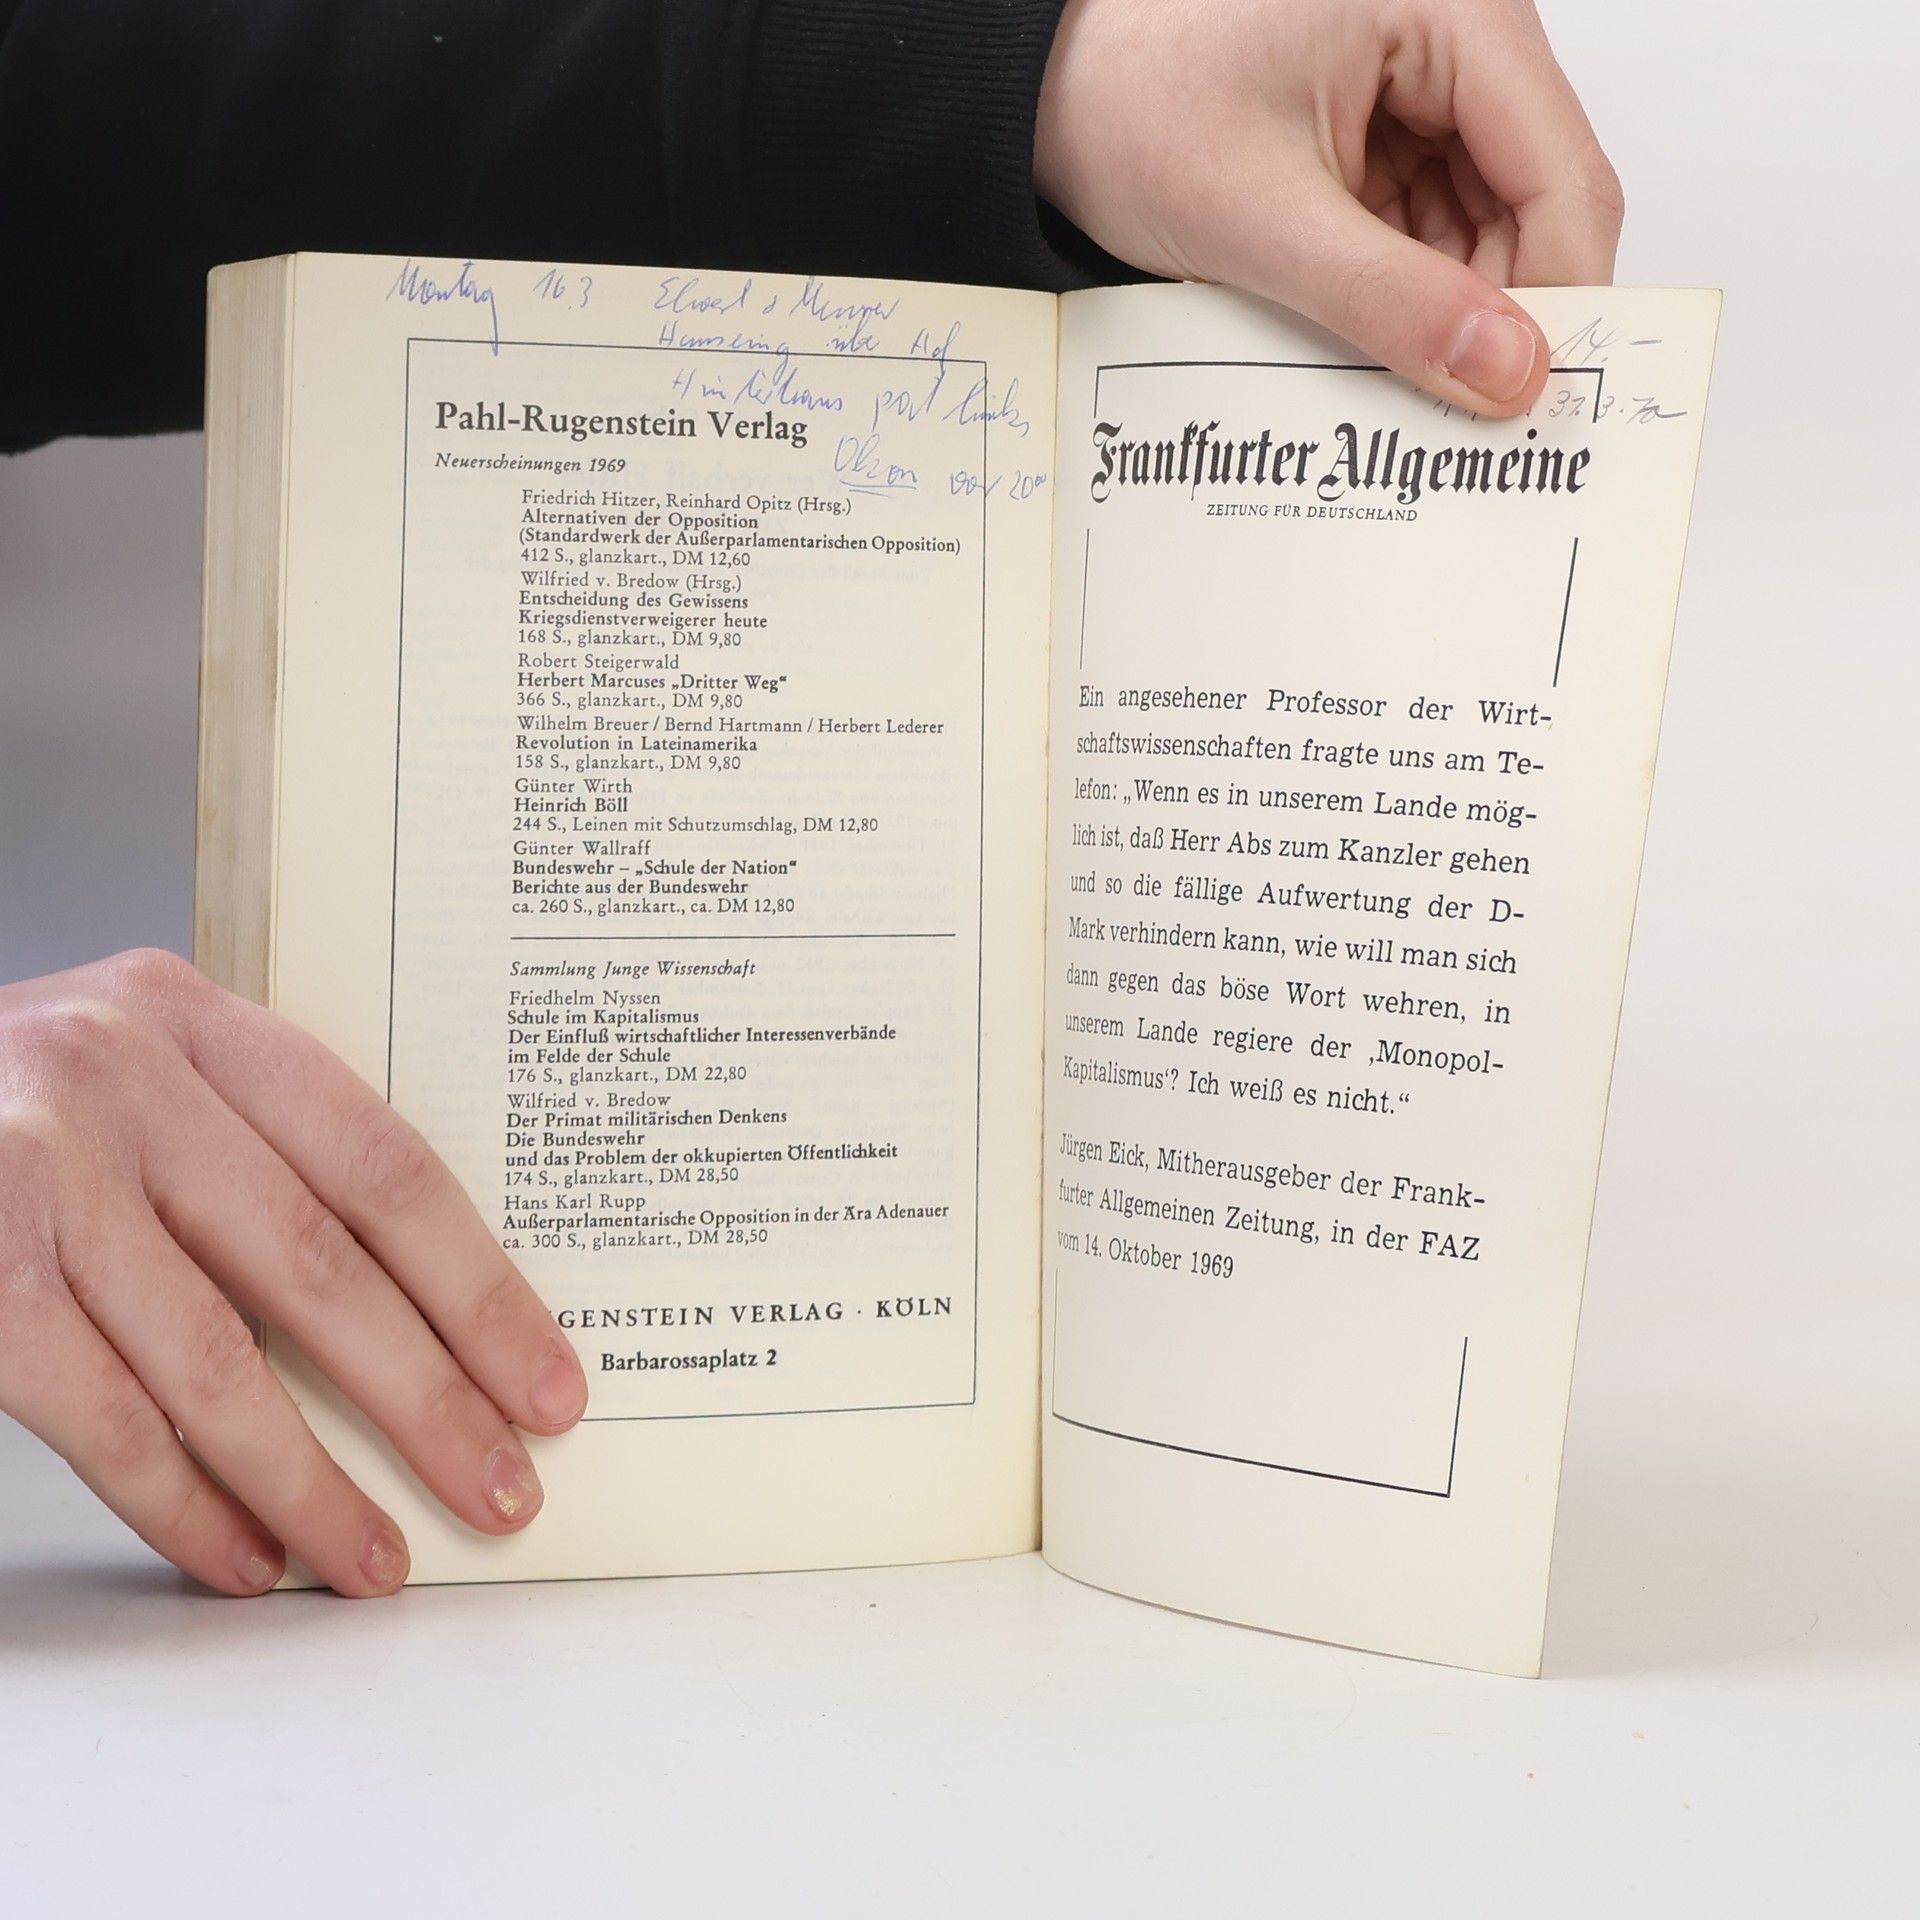 Montag 16.3
über Hof
Hinterhaus part links
vor 20⁰⁰
Pahl-Rugenstein Verlag
Neuerscheinungen 1969
Friedrich Hitzer, Reinhard Opitz (Hrsg.)
Alternativen der Opposition
(Standardwerk der Außerparlamentarischen Opposition)
412 S., glanzkart., DM 12,60
Wilfried v. Bredow (Hrsg.)
Entscheidung des Gewissens
Kriegsdienstverweigerer heute
168 S., glanzkart., DM 9,80
Robert Steigerwald
Herbert Marcuses „Dritter Weg“
366 S., glanzkart., DM 9,80
Wilhelm Breuer / Bernd Hartmann / Herbert Lederer
Revolution in Lateinamerika
158 S., glanzkart., DM 9,80
Günter Wirth
Heinrich Böll
244 S., Leinen mit Schutzumschlag, DM 12,80
Günter Wallraff
Bundeswehr – „Schule der Nation“
Berichte aus der Bundeswehr
ca. 260 S., glanzkart., ca. DM 12,80
Sammlung Junge Wissenschaft
Friedhelm Nyssen
Schule im Kapitalismus
Der Einfluß wirtschaftlicher Interessenverbände
im Felde der Schule
176 S., glanzkart., DM 22,80
Wilfried v. Bredow
Der Primat militärischen Denkens
Die Bundeswehr
und das Problem der okkupierten Öffentlichkeit
174 S., glanzkart., DM 28,50
Hans Karl Rupp
Außerparlamentarische Opposition in der Ära Adenauer
ca. 300 S., glanzkart., DM 28,50
GENSTEIN VERLAG · KÖLN
Barbarossaplatz 2
14.–
31.3.70
Frankfurter Allgemeine
ZEITUNG FÜR DEUTSCHLAND
Ein angesehener Professor der Wirt-
schaftswissenschaften fragte uns am Te-
lefon: „Wenn es in unserem Lande mög-
lich ist, daß Herr Abs zum Kanzler gehen
und so die fällige Aufwertung der D-
Mark verhindern kann, wie will man sich
dann gegen das böse Wort wehren, in
unserem Lande regiere der ‚Monopol-
Kapitalismus‘? Ich weiß es nicht.“
Jürgen Eick, Mitherausgeber der Frank-
furter Allgemeinen Zeitung, in der FAZ
vom 14. Oktober 1969